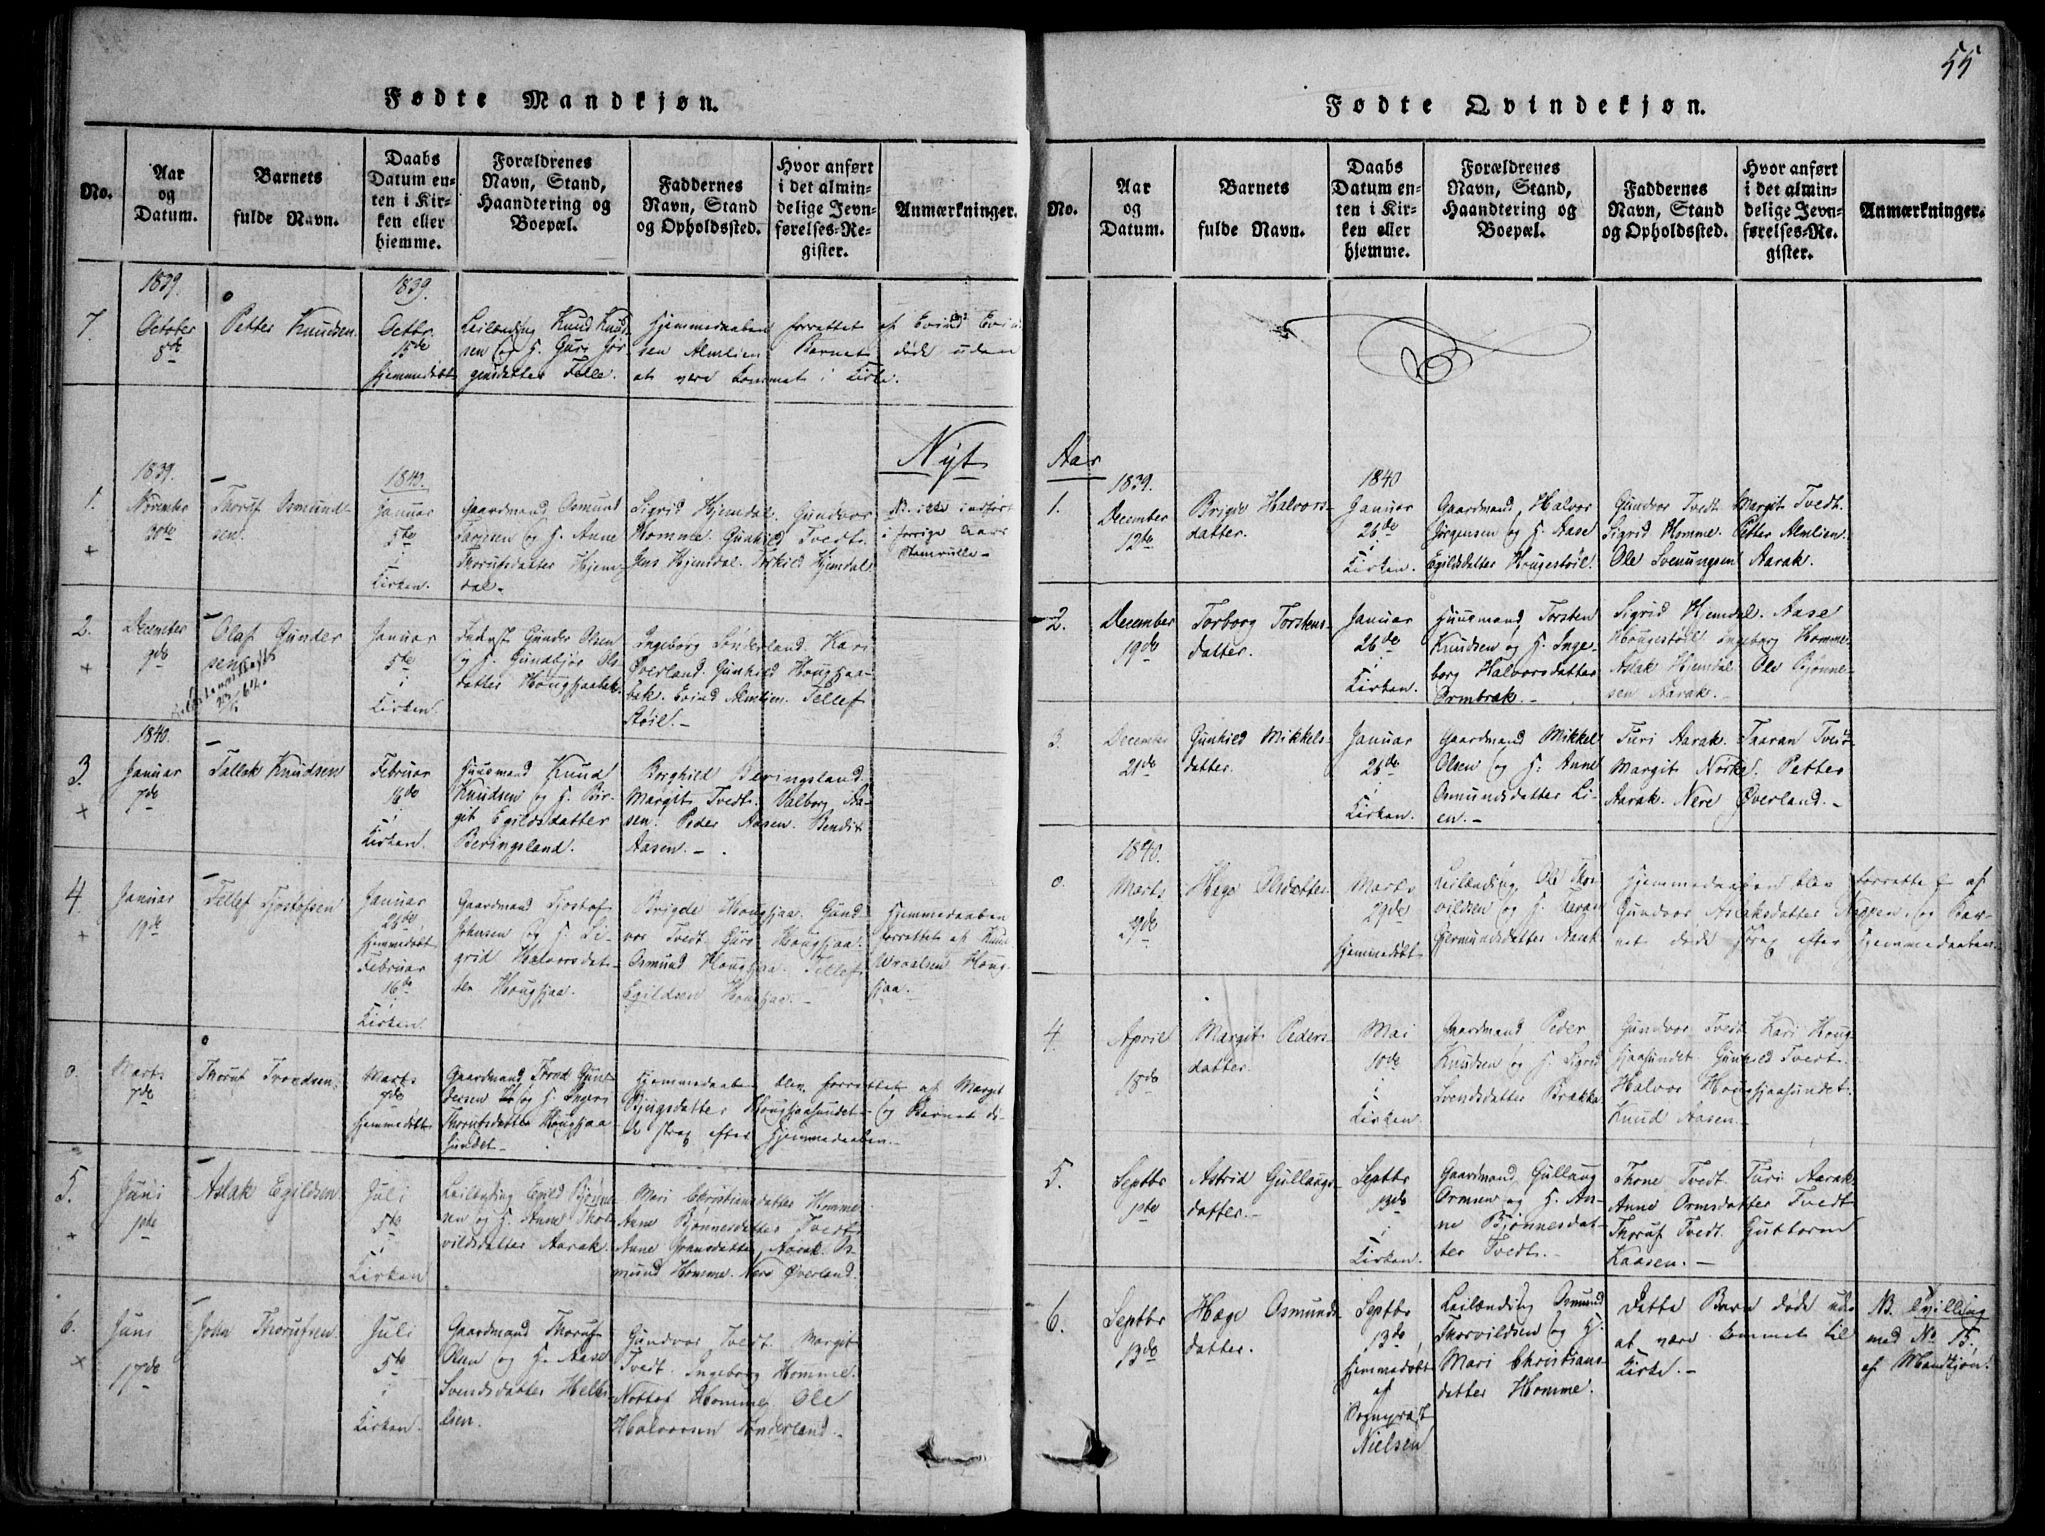 55
Fødte Mandkjøn.
No.
Aar
og
Datum.
Barnets
fulde Navn.
Daabs
Datum en-
ten i Kir-
ken eller
hjemme.
Forældrenes
Navn, Stand,
Haandtering og
Boepæl.
Faddernes
Navn, Stand
og Opholdssted.
Hvor anført
i det almin-
delige Jevn-
førelses-Re-
gister.
Anmærkninger.
7.
1839.
October
8de
Petter Knudsen
1839.
Octbr.
15de
hjemmedøbt
Leilænding Knud Knud-
sen og H. Guri Jør-
gensdatter Felle.
Hjemmedaaben forrettet af Evind
sen Almlien. Barnet døde uden
at være kommet i Kirke.
Nyt
1.
+
1839.
November
30te
Thoruf Osmund-
sen.
1840.
Januar
5te
i
Kirken.
Gaardmand Osmund
Tarjesen og H. Anne
Thorufsdatter Hjem-
dal.
Sigrid Hjemdal. Gundvor
Homme. Gunhild Tvedt.
Jens Hjemdal. Torkild Hjemdal.
NB. ikke indført
i forrige Aars
2.
+
December
9de
Olaf Gunder
sen
Januar
5te
i
Kirken.
Gunder Olsen
og H. Gundbjør Ols-
datter Hougsjaabak.
Ingeborg Sønderland. Kari
Øverland. Gunhild Hougsjaa-
bak. Evind Almlien. Tellef
Støil.-
3.
+
1840.
Januar
7de
Tallak Knudsen
Februar
16de
i
Kirken.
Huusmand Knud
Knudsen og H. Bir-
git Egildsdatter
Beringsland.
Borghild Beringsland.
Margit Tvedt. Valborg Aa-
sen. Peder Aasen. Bendit
Aasen.-
4.
+
Januar
19de
Tellef Tjostofsen
Januar
26de
hjemmedøbt
Februar
16de
i
Kirken.
Gaardmand Tjostof
Johnsen og H. Si-
grid Halvorsdat-
ter Hougsjaa.
Brigde Hougsjaa. Gund-
vor Tvedt. Guro Hougsjaa.
Osmund Hougsjaa. Tellef
Egildsen Hougsjaa.-
Hjemmedaaben
forrettet af Knud
Houg-
sjaa.-
0.
Marts
7de
Thoruf Trondsen.
Marts
7de
hjemmedøbt
Gaardmand Trond Gun-
dersen og H. Ingeri
Thorufsdatter Hougsjaa-
sundet.-
Hjemmedaaben blev forrettet af Margit
Bjugsdatter Hougsjaasundet og Barnet dø-
de strax efter Hjemmedaaben.-
5.
+
Juni
1ste
Aslak Egildsen.
Juli
5te
i
Kirken
Leilending Egild Bjønne-
sen og H. Anne Thor-
vildsdatter Aarak.
Mari Christiansdatter Homme.
Anne Bjønnesdatter Tvedt.
Anne Aarak. Os-
mund Homme. Nere Øverland.
6.
+
Juni
17de
John Thorufsen.
Juli
5te
i
Kirken.
Gaardmand Thoruf
Olsen og H. Aase
Svendsdatter Helle-
lien.
Gundvor Tvedt. Margit
Tvedt. Ingeborg Homme.
Nottof Homme. Ole
Halvorsen Sønderland.-
Fødte Qvindekjøn.
No.
Aar
og
Datum.
Barnets
fulde Navn.
Daabs
Datum en-
ten i Kir-
ken eller
hjemme.
Forældrenes
Navn, Stand,
Haandtering og
Boepæl.
Faddernes
Navn, Stand
og Opholdssted.
Hvor anført
i det almin-
delige Jevn-
førelses-Re-
gister.
Anmærkninger.
Aar
1.
1839.
December
12te
Brigde Halvors-
datter.
1840
Januar
26de
i
Kirken.
Gaardmand Halvor
Jørgensen og H. Aase
Egildsdatter Hougestøil.
Gundvor Tvedt. Margit Tvedt.
Sigrid Homme. Petter Almlien.
Ole Svenungsen Aarak.
2.
December
19de
Torborg Torstens-
datter.
Januar
26de
i
Kirken.
Huusmand Torsten
Knudsen og H. Inge-
borg Halvorsdatter
Ormbrak.-
Sigrid Hjemdal. Aase
Hougestøil. Ingeborg Homme.
Aslak Hjemdal. Ole Bjønne-
sen Aarak.-
3.
December
21de
Gunhild Mikkels-
datter.
Januar
26de
i
Kirken.
Gaardmand Mikkel
Olsen og H. Anne
Osmundsdatter Li-
en.-
Turi Aarak. Taaran Tvedt.
Margit Norke. Petter
Aarak. Nere Øverland.-
0.
1840.
Marts
29de
Hæge Olsdatter
Marts
29de
hjemmedøbt
Leilænding Ole Thor-
vildsen og H. Taran
Germundsdatter Aarak
Hjemmedaaben blev forrettet af
Gundvor Aslaksdatter Nappen, og Bar-
net døde strax efter Hjemmedaaben.
4.
April
18de
Margit Peders-
datter.
Mai
10de
i
Kirken
Gaardmand Peder
Knudsen og H. Sigrid
Svendsdatter Brække
Gundvor Tvedt. Kari Houg-
sjaasundet. Gunhild Tvedt.
Halvor Hougsjaasundet.
Knud Aasen.-
5.
Septbr
1ste
Astrid Gullaugs-
datter.-
Septbr
13de
i
Kirken.
Gaardmand Gullaug
Ormsen og H. An-
ne Bjønnesdat-
ter Tvedt.-
Thone Tvedt. Turi Aarak.
Anne Ormsdatter Tvedt.
Thoruf Tvedt. Guttorm
Kaasen.-
6.
Septbr
13de
Hæge Osmunds-
datter.
Septbr
13de
hjemmedøbt
af
Sognepræst
Nielsen
Leilænding Osmund
Thorvildsen og H.
Mari Christians-
datter Homme.
Dette Barn døde uden
at være kommet til
Kirke.-
NB. Tvilling
med No 15.
af Mandkjøn.